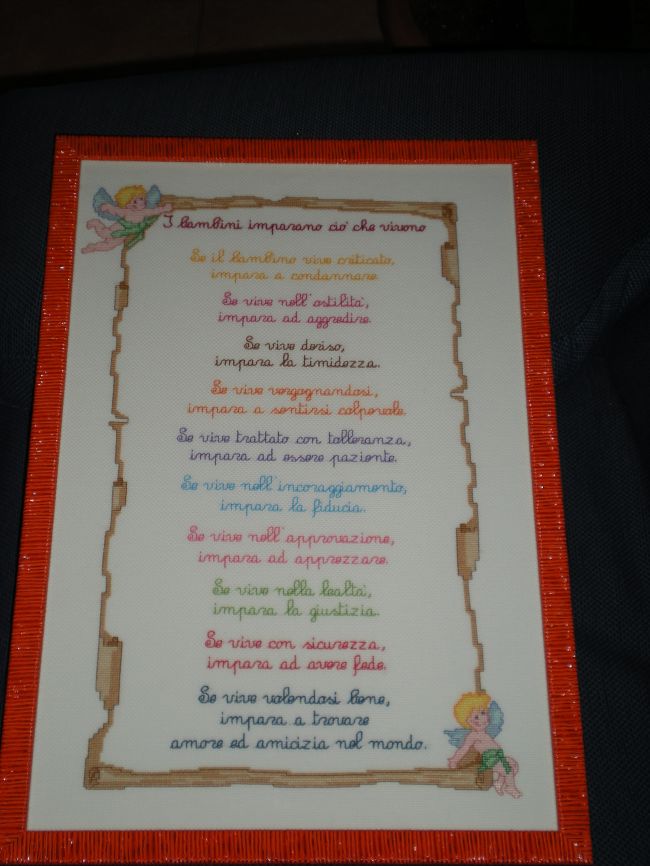 I bambini imparano ciò che vivono
Se il bambino vive criticato,
impara a condannare.
Se vive nell'ostilità,
impara ad aggredire.
Se vive deriso,
impara la timidezza.
Se vive vergognandosi,
impara a sentirsi colpevole.
Se vive trattato con tolleranza,
impara ad essere paziente.
Se vive nell'incoraggiamento,
impara la fiducia.
Se vive nell'approvazione,
impara ad apprezzare.
Se vive nella lealtà,
impara la giustizia.
Se vive con sicurezza,
impara ad avere fede.
Se vive volendosi bene,
impara a trovare
amore ed amicizia nel mondo.